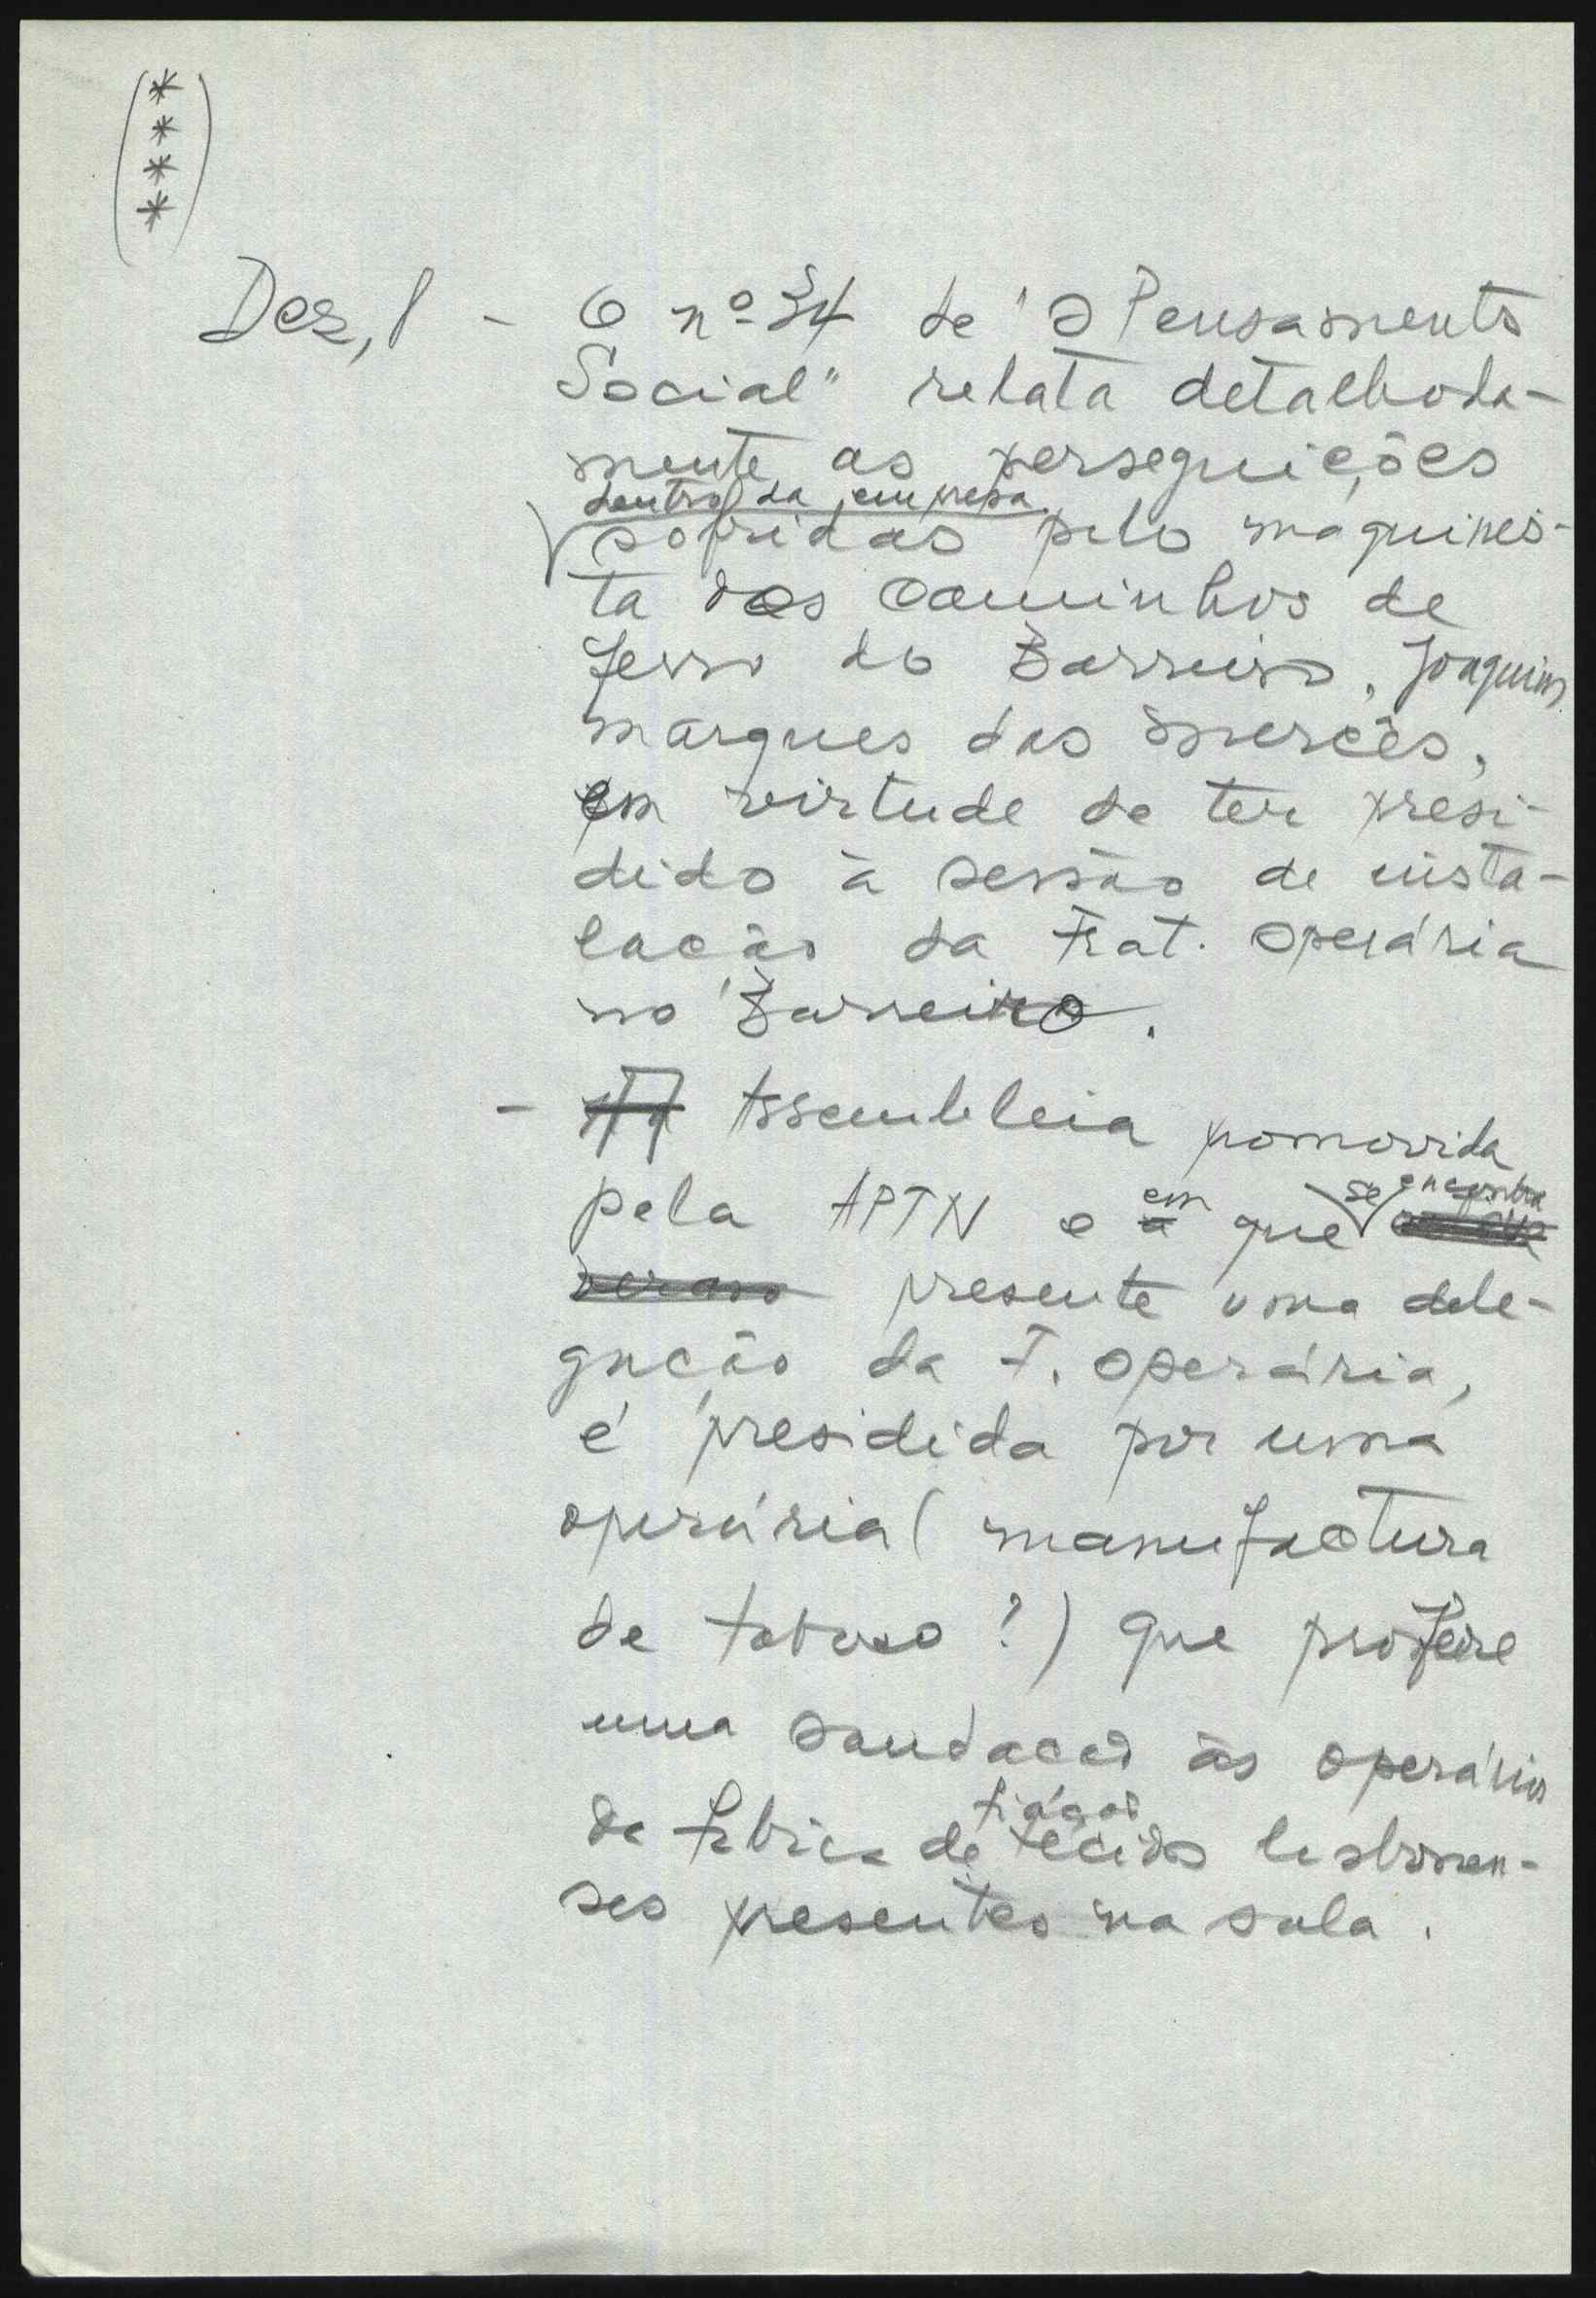 (****)
Dez, 1 - O nº 34 de "O Pensamento
Social" relata detalhada-
mente as perseguições
dentro da empresa
sofridas pelo maquinis-
ta dos Caminhos de
Ferro do Barreiro, Joaquim
Marques das Mercês,
em virtude de ter presi-
dido à sessão de insta-
lação da Frat. Operária
no Barreiro.
- Assembleia promovida
pela APTN e em que se encontra
presente uma dele-
gação da F. Operária,
é presidida por uma
operária (manufactura
de tabaco?) que profere
uma saudação às operárias
da fábrica de fiação
tecidos lisbonen-
ses presentes na sala.